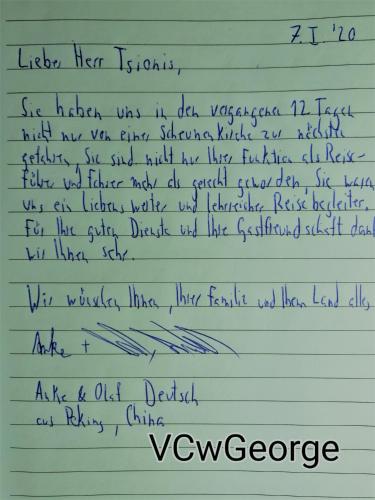 7.I.'20
Lieber Herr Tsionis,
Sie haben uns in den vergangenen 12 Tagen
nicht nur von einer Scheunenkirche zur nächsten
gefahren, Sie sind nicht nur Ihrer Funktion als Reise-
führer und Fahrer mehr als gerecht geworden, Sie waren
uns ein liebenswerter und lehrreicher Reisebegleiter.
Für Ihre guten Dienste und Ihre Gastfreundschaft dank
wir Ihnen sehr.
Wir wünschen Ihnen, Ihrer Familie und Ihrem Land alles
Anke +
Anke & Olaf Deutsch
aus Peking, China
VCwGeorge